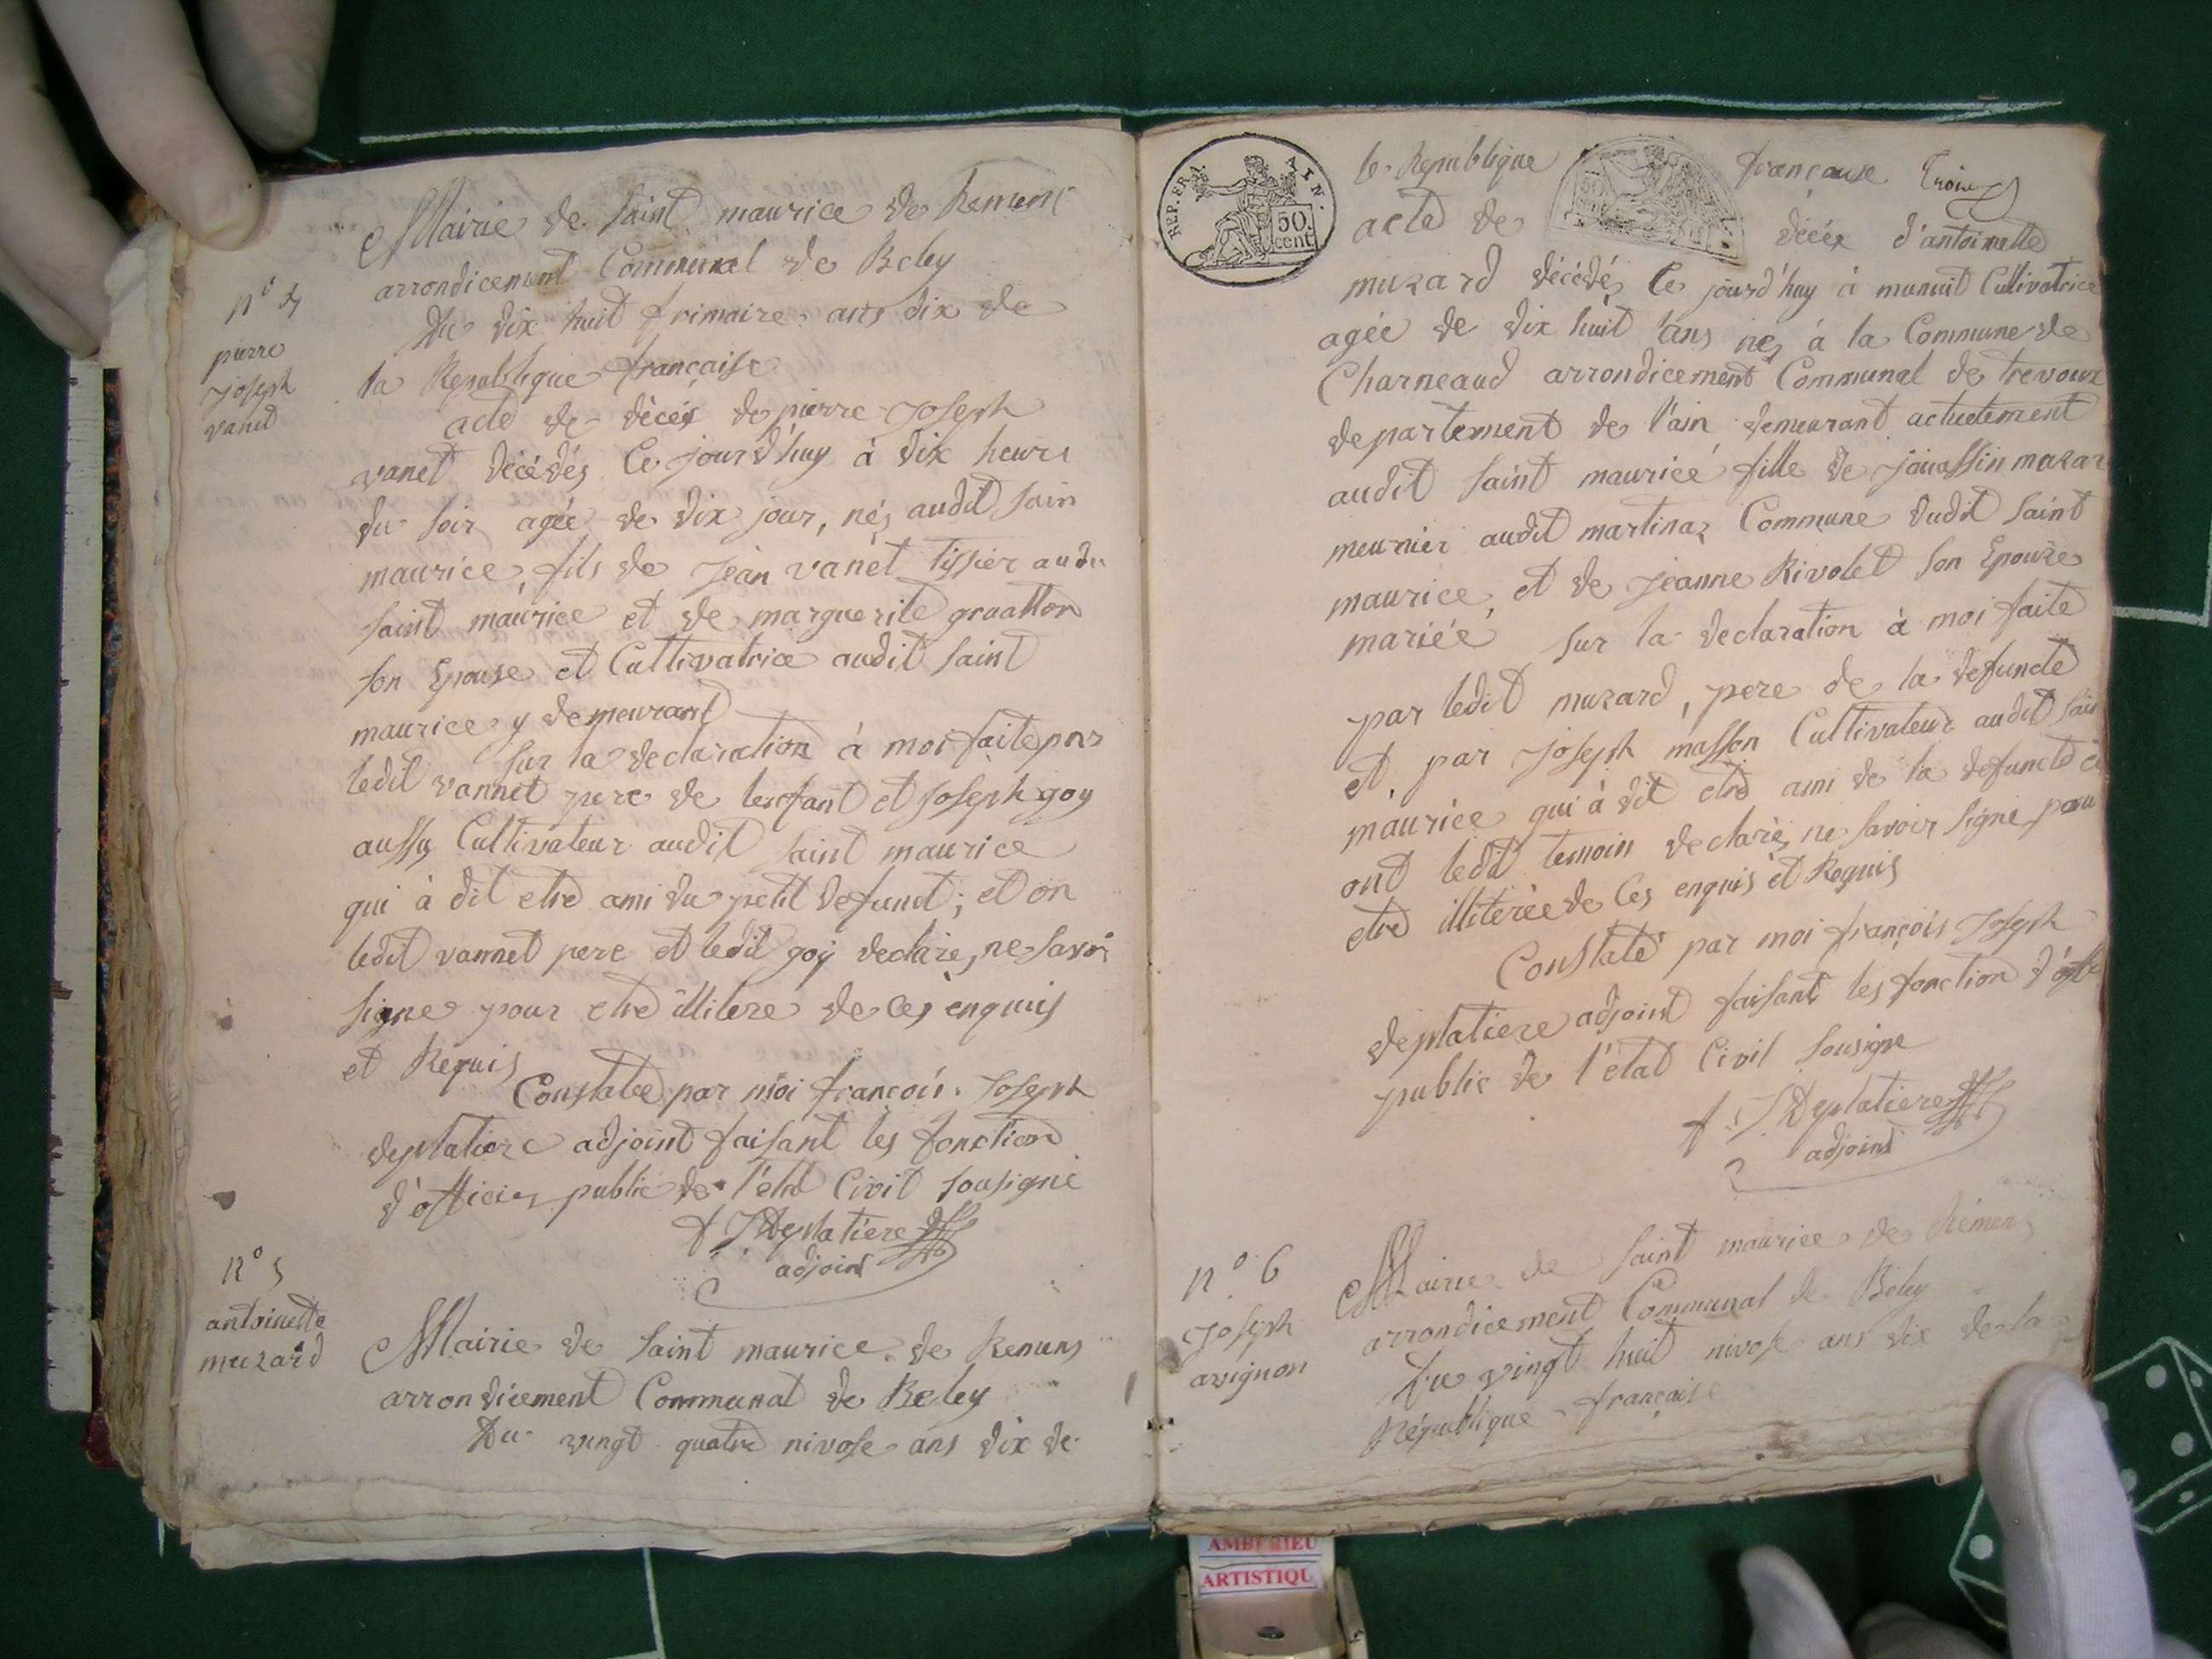 Mairie de Saint maurice de Remens
arrondicement Communal de Beley
n° 4
Du dix huit frimaire ans dix de
pierre
joseph
vanet
la Republique française
acte de décés de pierre Joseph
vanet décédés Ce jourd'huy à dix heurs
du soir agée de dix jour, nés audit Sain
maurice, fils de Jean vanet tissier audi
saint maurice et de marguerite
son Epouse et Cultivatrice audit Saint
maurice y demeurant
Sur la declaration à moi faite par
ledit vannet pere de lenfant et Joseph goy
aussy Cultivateur audit Saint maurice
qui à dit etre ami du petit defunct ; et on
ledit vannet pere et ledit goy declare, ne Savoi
signe pour etre illitere de Ces enquis
et Requis
Constatee par moi françois Joseph
deplatiere adjoint faisant les fonction
d'officier public de l'etat Civil Sousigné
f J Deplatiere
adjoint
n° 5
antoinette
muzard
Mairie de Saint maurice de Remens
arrondicement Communal de Beley
Du vingt quatre nivose ans dix de
REP. FRA. AIN.
50 cent
la Republique française Trois
acte de décés d'antoinette
muzard décédés Ce jourd'huy à minuit Cultivatrice
agée de dix huit ans nés à la Commune de
Charneaud arrondicement Communal de trevoux
departement de l'ain demeurant actuelement
audit Saint maurice fille de
meunier audit martinaz Commune dudit Saint
maurice, et de Jeanne Rivolet Son Epouze
mariée Sur la declaration à moi faite
par ledit muzard, pere de la defuncte
et par Joseph masson Cultivateur audit Sain
maurice qui à dit etre ami de la defuncte
ont ledit temoin declarés ne Savoir Signe pour
etre illiterée de Ces enquis et Requis
Constaté par moi françois Joseph
deplatiere adjoint faisant les fonction
public de l'etat Civil Sousigne
f J Deplatiere
adjoint
n° 6
Joseph
avignon
Mairie de Saint maurice de Rémens
arrondicement Communal de Beley
Du vingt huit nivose ans dix de la
République française
AMBERIEU
ARTISTIQU